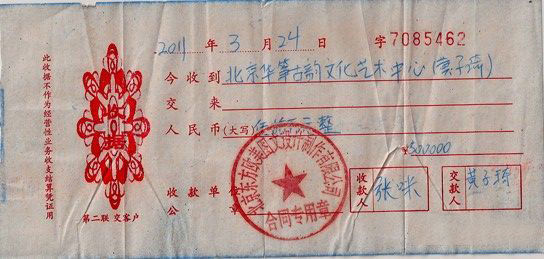 2011 年 3 月 24 日 字7085462
今收到 北京华筝古韵文化艺术中心(黄子琦)
交来
人民币(大写) 伍拾万元整
¥500000
收款单位
公
收款人 张咪
交款人 黄子琦
第二联 交客户
此收据不作为经营性业务收支结算凭证用
收据
北京东方欧美图文设计制作有限公司
合同专用章